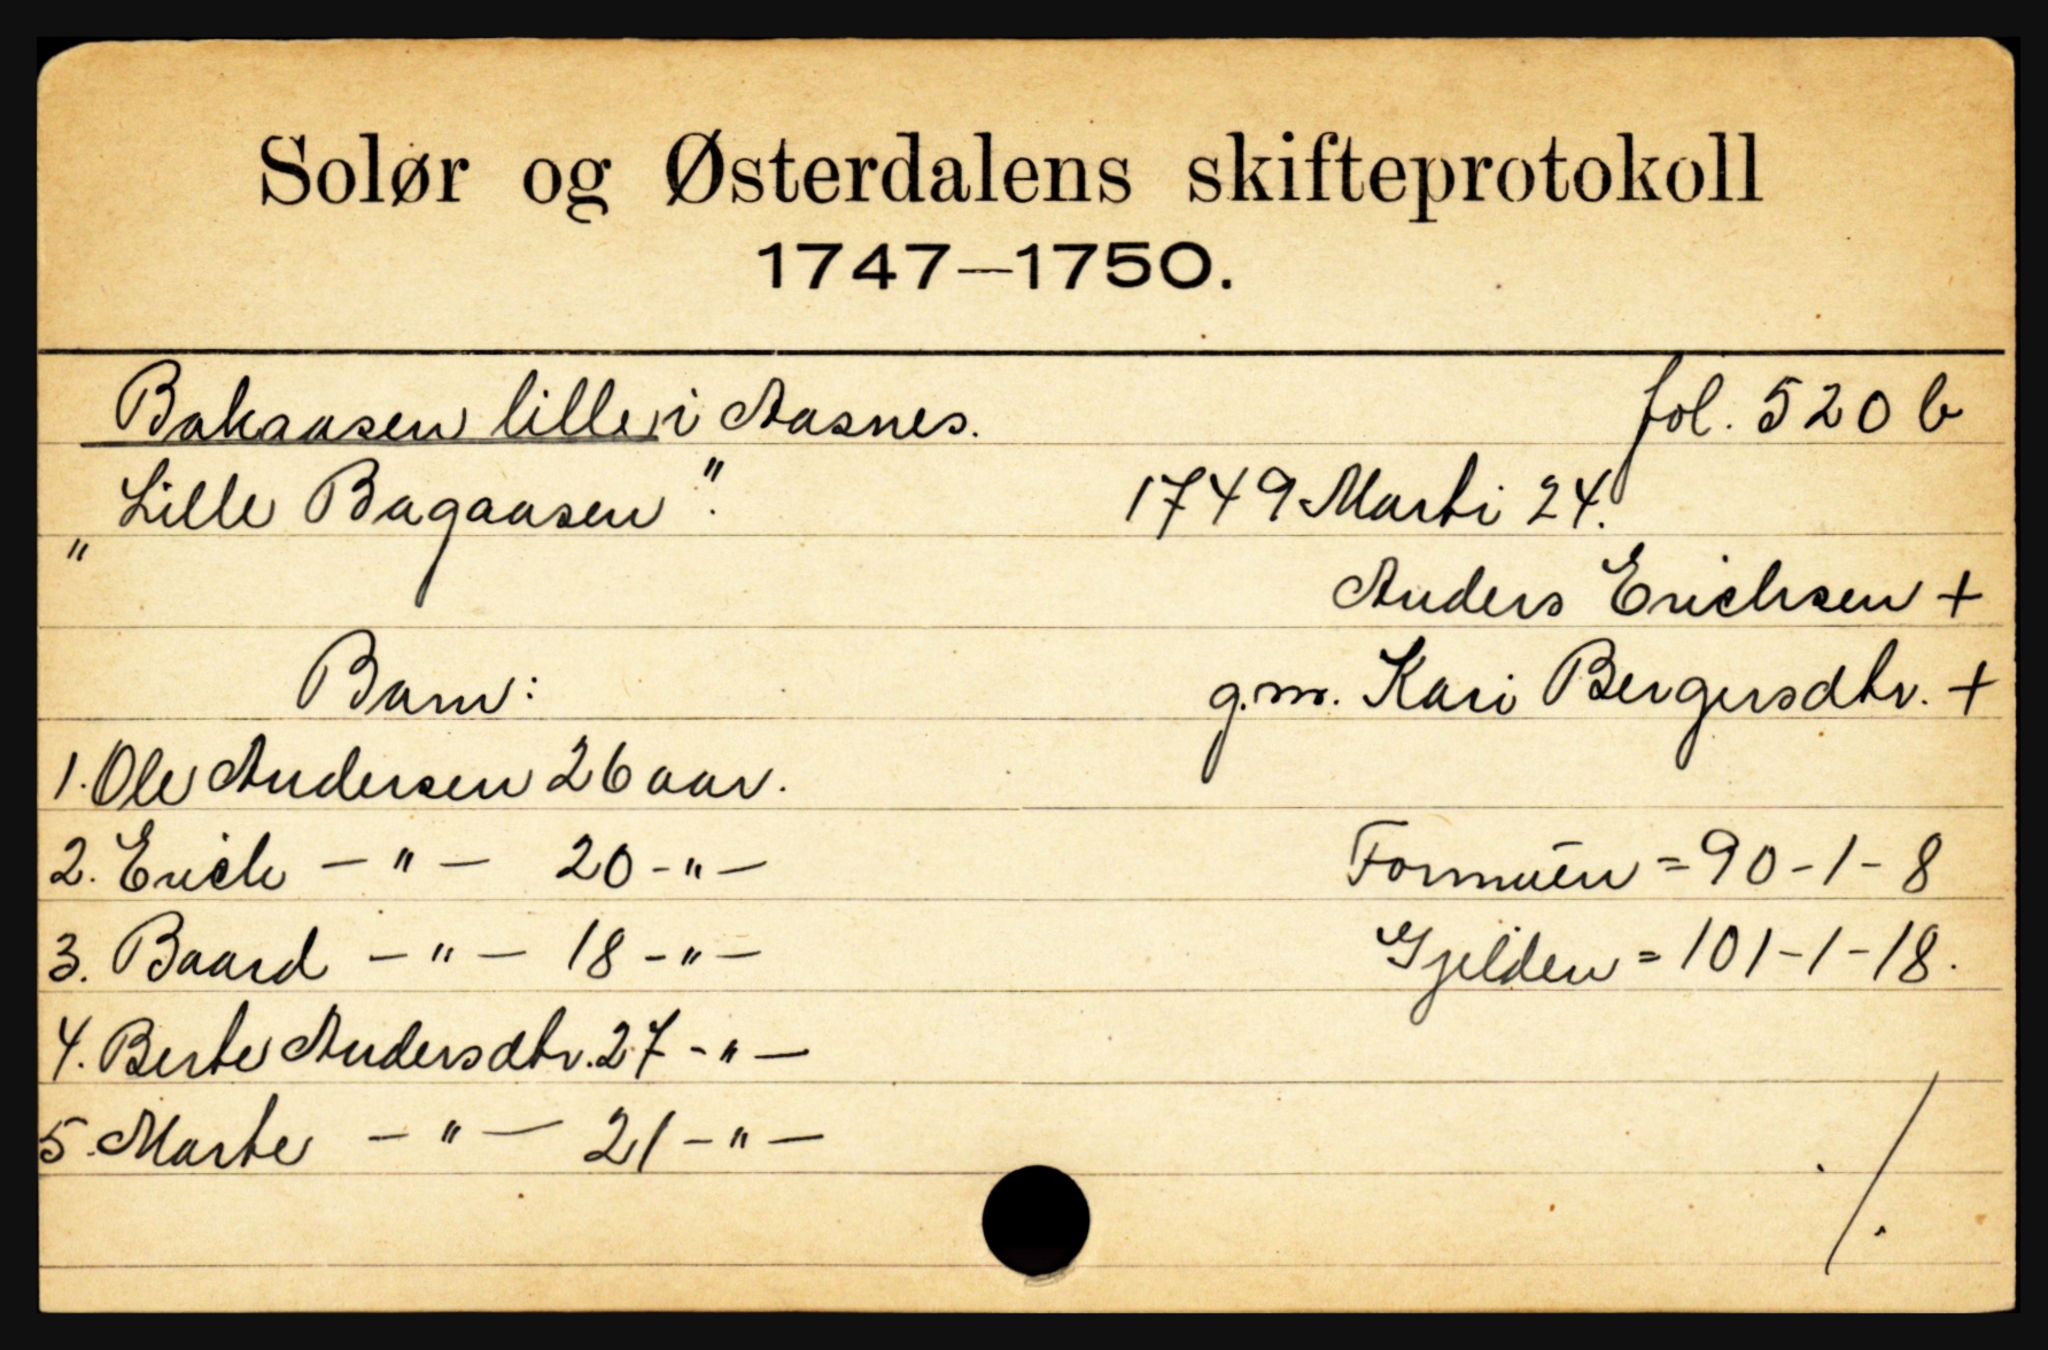 Solør og Østerdalens skifteprotokoll
1747—1750.
Bakaasen lille i Aasnes. fol. 520 b
„Lille Bagaasen". 1749 Marti 24.
Anders Erichsen +
Barn: g.m. Kari Bergersdtr. +
1. Ole Andersen 26 aar.
2. Erich — " — 20 - " — Formuen = 90-1-8
3. Baard — " — 18 - " — Gjelden = 101-1-18.
4. Berte Andersdtr. 27 - " —
5. Marte — " — 21 - " —
./.